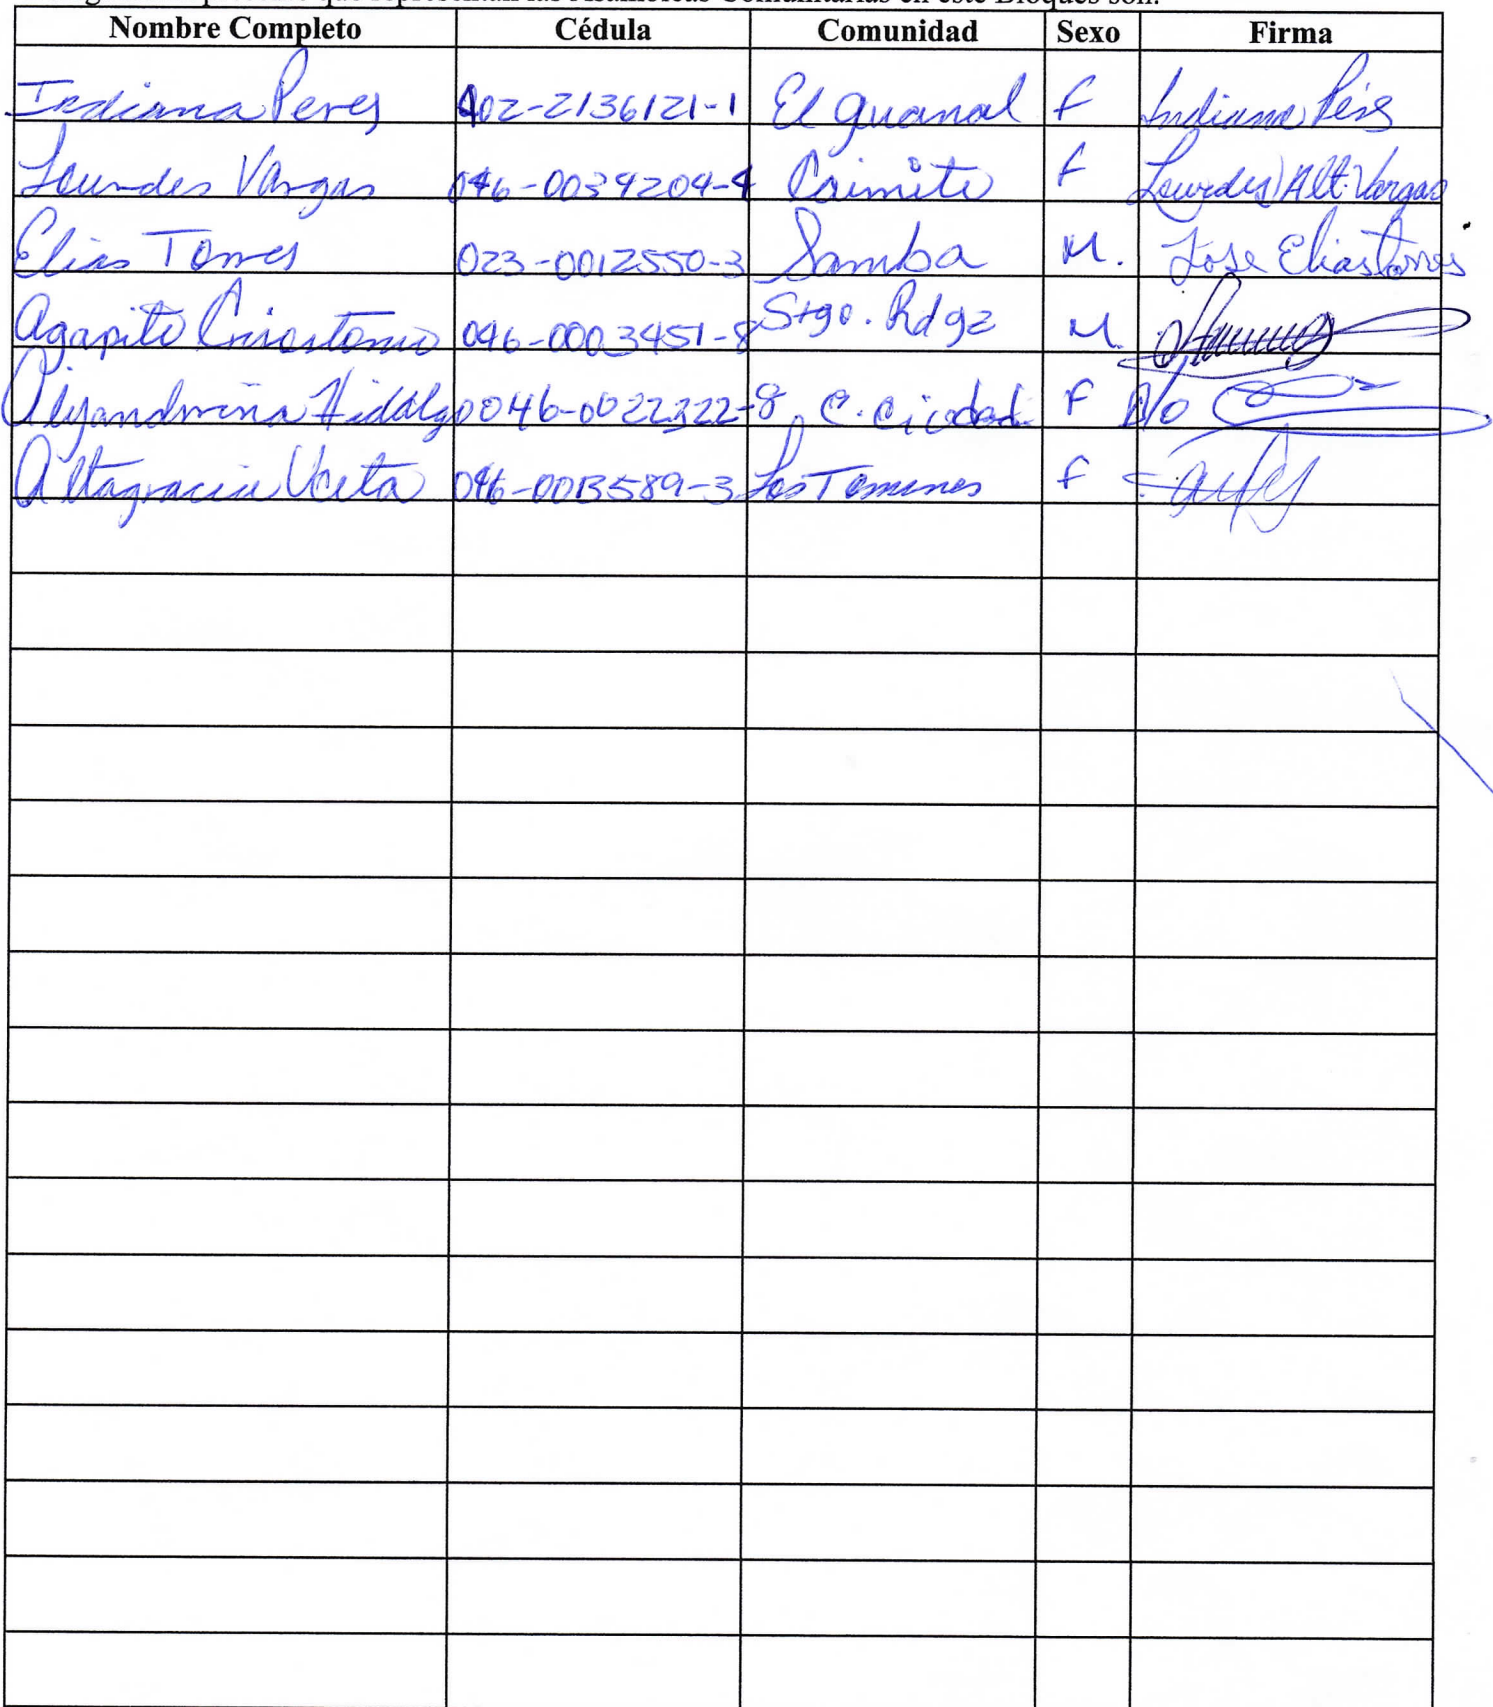 que representan las Asambleas Comunitarias en este Bloques son:
Nombre Completo Cédula Comunidad Sexo Firma
Indiana Perez 402-2136121-1 El guanal F Indiana Péres
Lourdes Vargas 046-0034204-4 Caimito F Lourdes Alt. Vargas
Elias Torres 023-0012550-3 Samba M. Jose Elias torres
Agapito Crisostomo 046-0003451-8 Stgo. Rdgz M.
Alejandrina Hidalgo 046-0022322-8 C. Ciudad F P/O
Altagracia Uceta 046-0013589-3 Los Tomines F